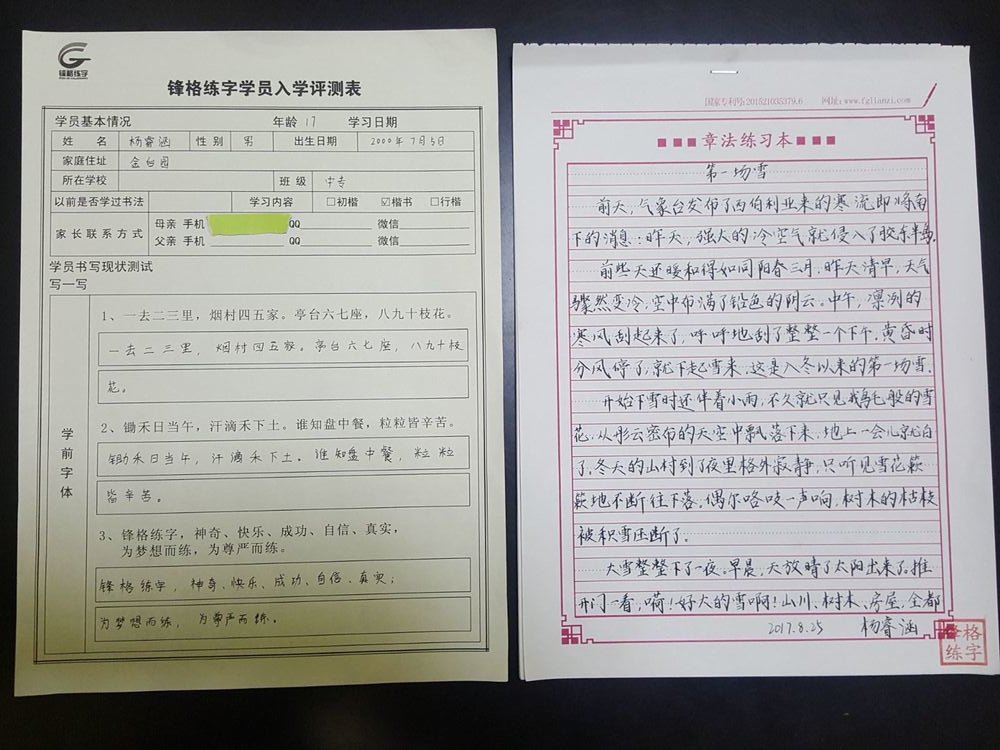 锋格练字
锋格练字学员入学评测表
学员基本情况 年龄 17 学习日期
姓 名 杨睿涵 性 别 男 出生日期 2000年7月5日
家庭住址 金台园
所在学校 班 级 中专
以前是否学过书法 学习内容 □初楷 ☑楷书 □行楷
家长联系方式 母亲 手机 QQ 微信
父亲 手机 QQ 微信
学员书写现状测试
写一写
学前字体
1、一去二三里，烟村四五家。亭台六七座，八九十枝花。
一去二三里，烟村四五家。亭台六七座，八九十枝
花。
2、锄禾日当午，汗滴禾下土。谁知盘中餐，粒粒皆辛苦。
锄禾日当午，汗滴禾下土。谁知盘中餐，粒粒
皆辛苦。
3、锋格练字，神奇、快乐、成功、自信、真实，
为梦想而练，为尊严而练。
锋格练字，神奇、快乐、成功、自信、真实；
为梦想而练，为尊严而练。
国家专利号:201521035379.6 网址:www.fglianzi.com
章法练习本
第一场雪
前天，气象台发布了西伯利亚来的寒流即将南
下的消息：昨天，强大的冷空气就侵入了胶东半岛.
前些天还暖和得如同阳春三月.昨天清早，天气
骤然变冷，空中布满了铅色的阴云。中午，凛冽的
寒风刮起来了，呼呼地刮了整整一个下午，黄昏时
分风停了，就下起雪来，这是入冬以来的第一场雪.
开始下雪时还伴着小雨，不久就只见鹅毛般的雪
花，从彤云密布的天空中飘落下来，地上一会儿就白
了，冬天的山村到了夜里格外寂静，只听见雪花簌
簌地不断往下落，偶尔咯吱一声响，树木的枯枝
被积雪压断了。
大雪整整下了一夜。早晨，天放晴了太阳出来了。推
开门一看，嗬！好大的雪啊！山川、树木、房屋，全都
2017.8.25 杨睿涵
锋格
练字